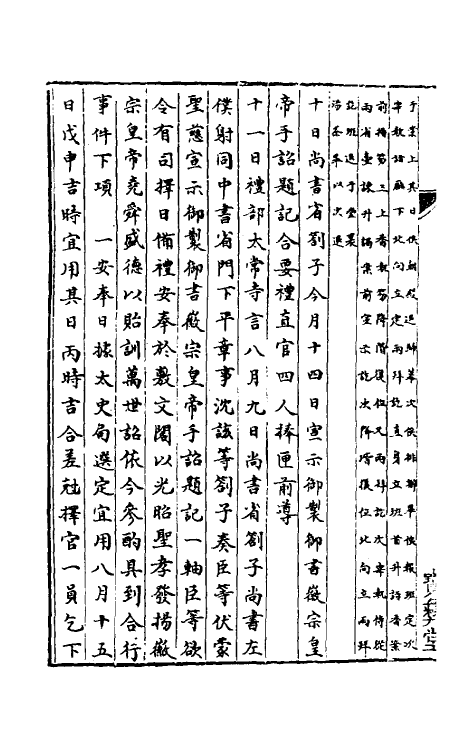 于堂上其日俟朝殿退歸幕次俟排辦畢俟報班定次
宰執詣廳下北向立定兩拜訖直身立班首升詣香案
前搢笏三上香執笏降階復位又兩拜訖次宰執侍從
兩省臺諫升詣案前宣示訖次降階復位北向立兩拜
訖班退于堂裏
茶畢以次退
十日尚書省劄子今月十四日宣示御製御書徽宗皇
帝手詔題記合要禮直官四人捧匣前導
十一日禮部太常寺言八月九日尚書省劄子尚書左
僕射同中書省門下平章事沈該等劄子奏臣等伏蒙
聖慈宣示御製御書徽宗皇帝手詔題記一軸臣等欲
令有司擇日備禮安奉於敷文閣以光昭聖孝發揚徽
宗皇帝堯舜盛德以貽訓萬世詔依今參酌具到合行
事件下項　一安奉日據太史局選定宜用八月十五
日戊申吉時宜用其日丙時吉合差祗擇官一員乞下